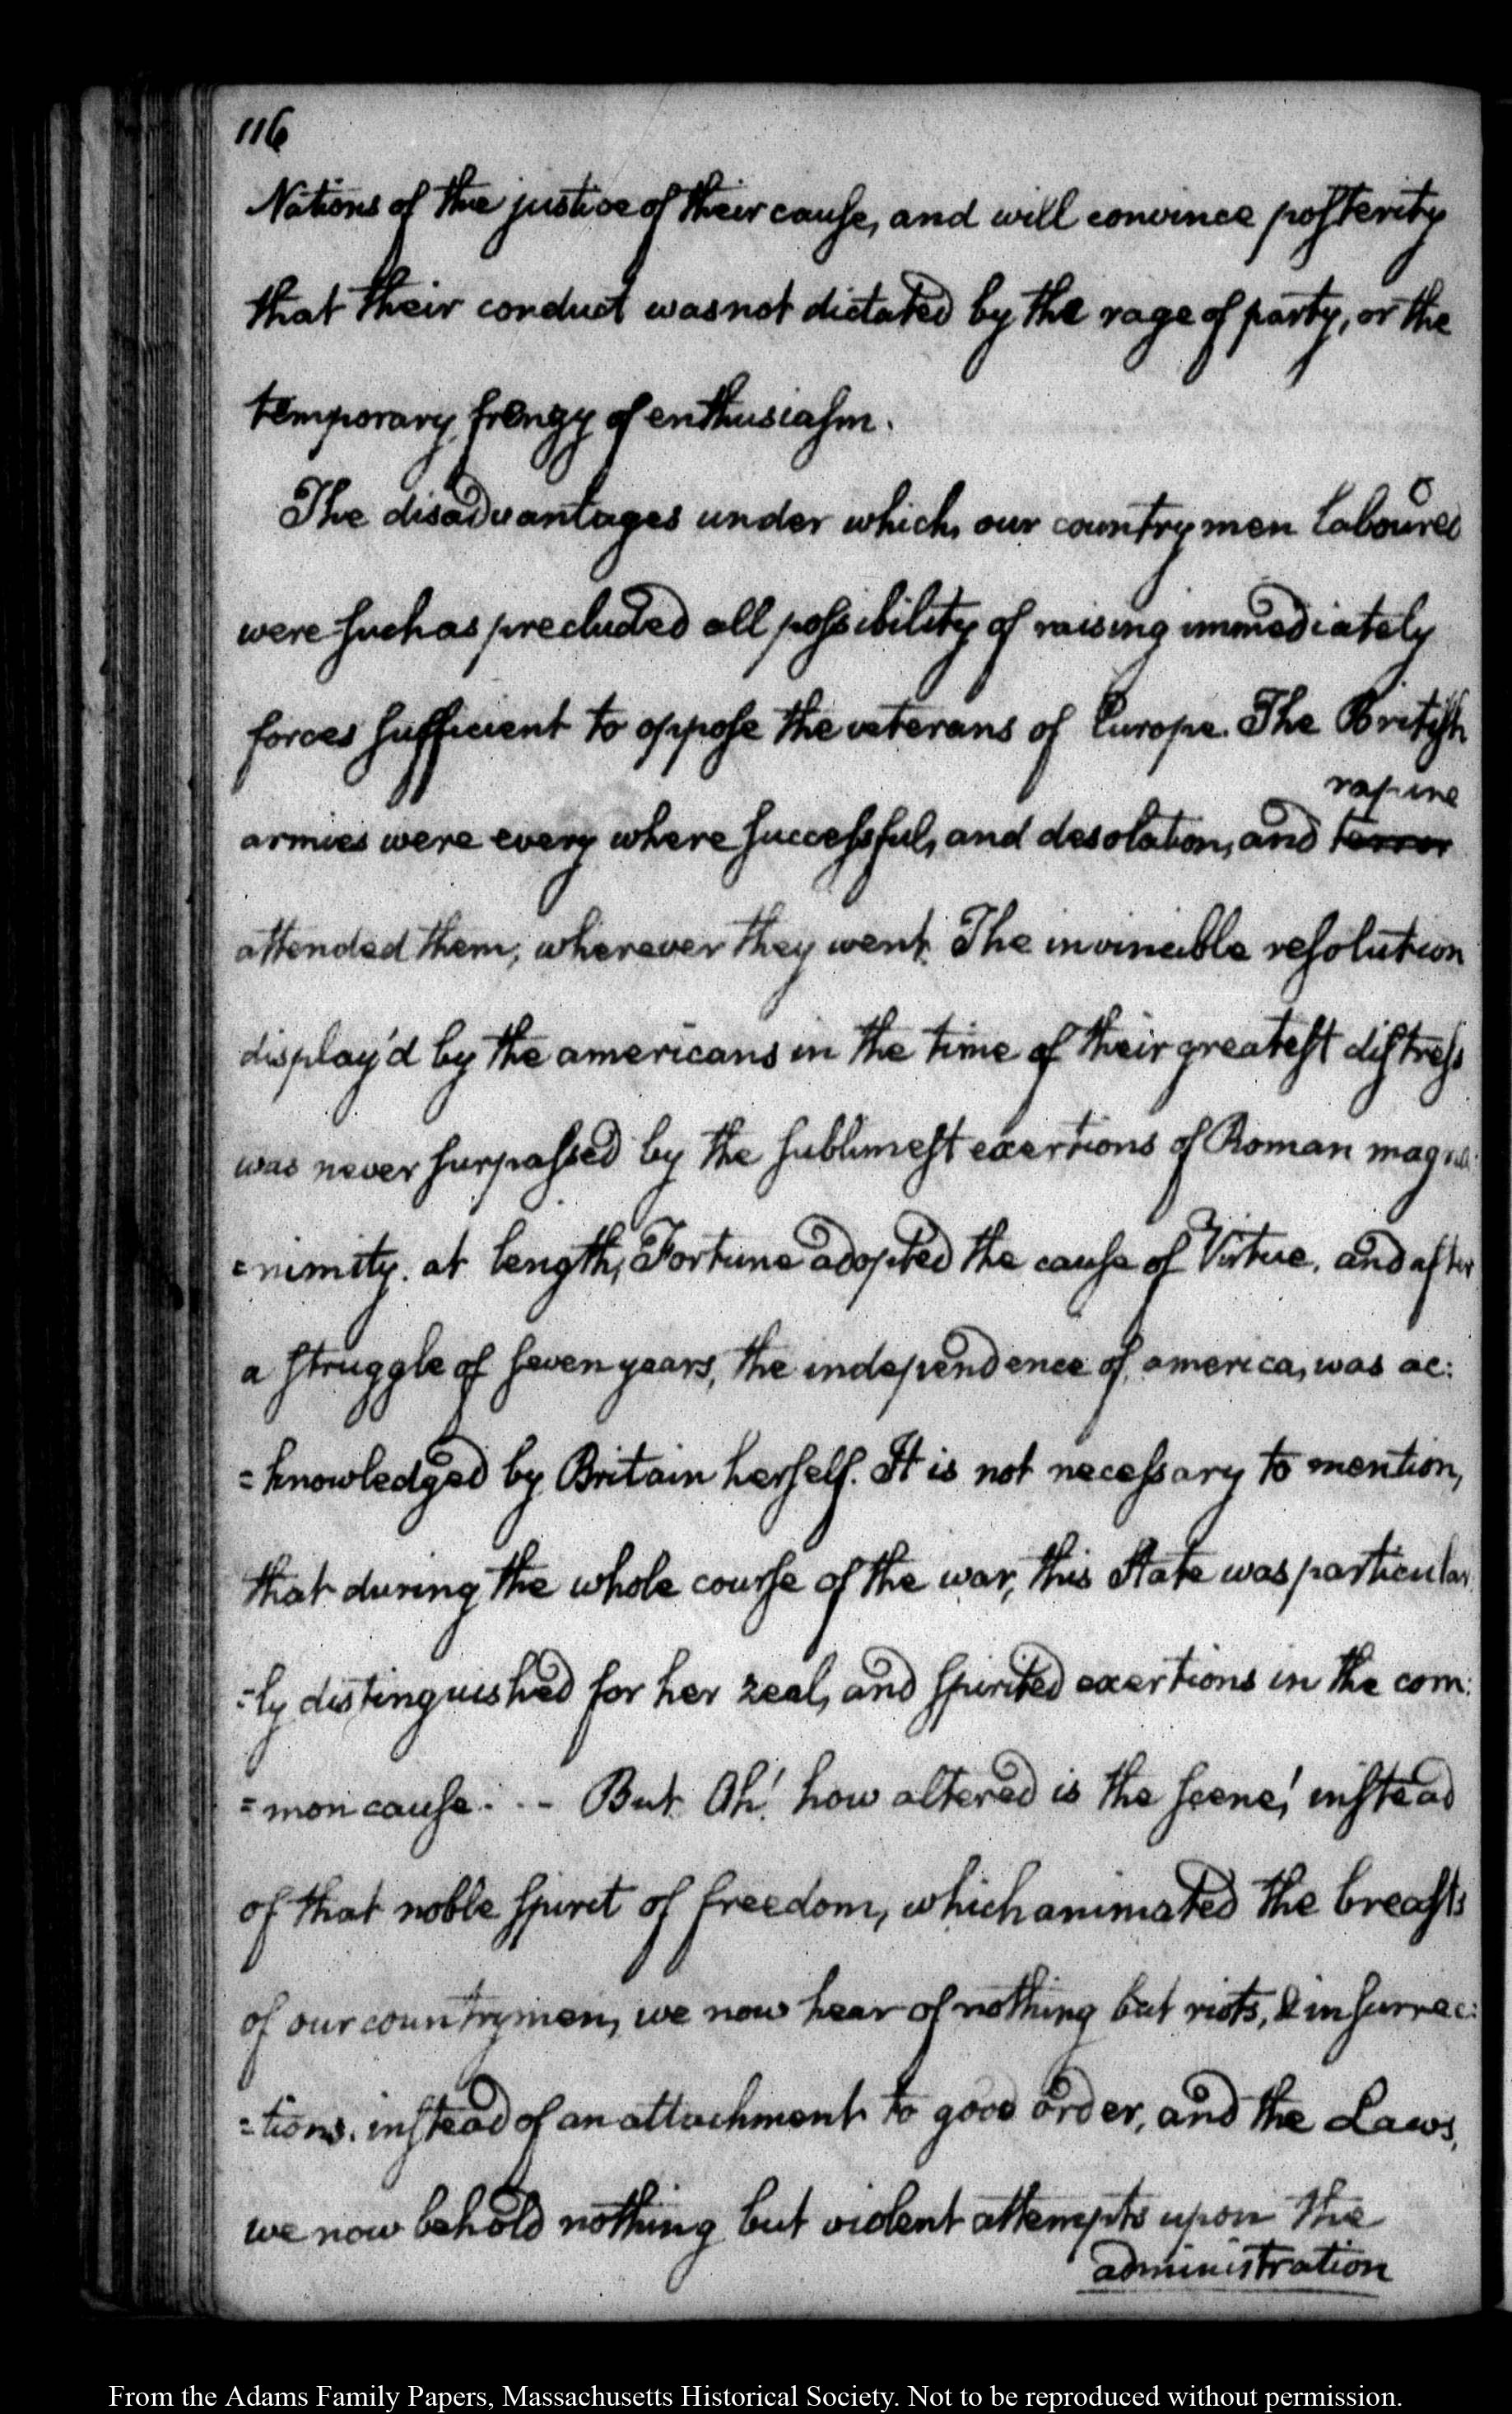 116
Nations of the justice of their cause, and will convince posterity
that their conduct was not dictated by the rage of party, or the
temporary frenzy of enthusiasm.
The disadvantages under which, our countrymen laboured
were such as precluded all possibility of raising immediately
forces sufficient to oppose the veterans of Europe. The British
rapine
armies were every where successful, and desolation, and terror
attended them, wherever they went. The invincible resolution
display'd by the americans in the time of their greatest distress
was never surpassed by the sublimest exertions of Roman magna
=nimity. at length, Fortune adopted the cause of Virtue, and after
a struggle of seven years, the independence of america, was ac:
=knowledged by Britain herself. It is not necessary to mention,
that during the whole course of the war, this State was particular
=ly distinguished for her zeal, and spirited exertions in the com:
=mon cause. .. - But Oh! how altered is the scene! instead
of that noble spirit of freedom, which animated the breasts
of our countrymen, we now hear of nothing but riots, & insurrec:
=tions. instead of an attachment to good order, and the Laws,
we now behold nothing but violent attempts upon the
administration
From the Adams Family Papers, Massachusetts Historical Society. Not to be reproduced without permission.